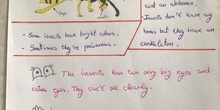 and an abdomen.
Insects don't have any
bones but they have an
exoskeleton.
- Some insects have bright colors.
- Sometimes they're poisonous.
The insects has two very big eyes and
extra eyes. They can't see clearly.